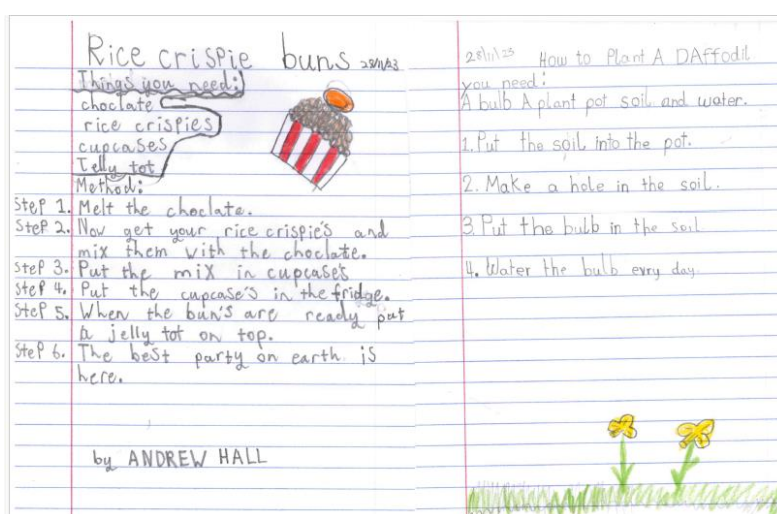 Rice crispie buns 28/11/23
Things you need:
choclate
rice crispies
cupcases
Jelly tot
Method:
Step 1. Melt the choclate.
Step 2. Now get your rice crispie's and
mix them with the choclate.
Step 3. Put the mix in cupcase's
Step 4. Put the cupcase's in the fridge.
Step 5. When the bun's are ready put
a jelly tot on top.
Step 6. The best party on earth is
here.
by ANDREW HALL
28/11/23 How to Plant A DAffodil
you need:
A bulb A plant pot soil and water.
1. Put the soil into the pot.
2. Make a hole in the soil.
3. Put the bulb in the soil
4. Water the bulb evry day.